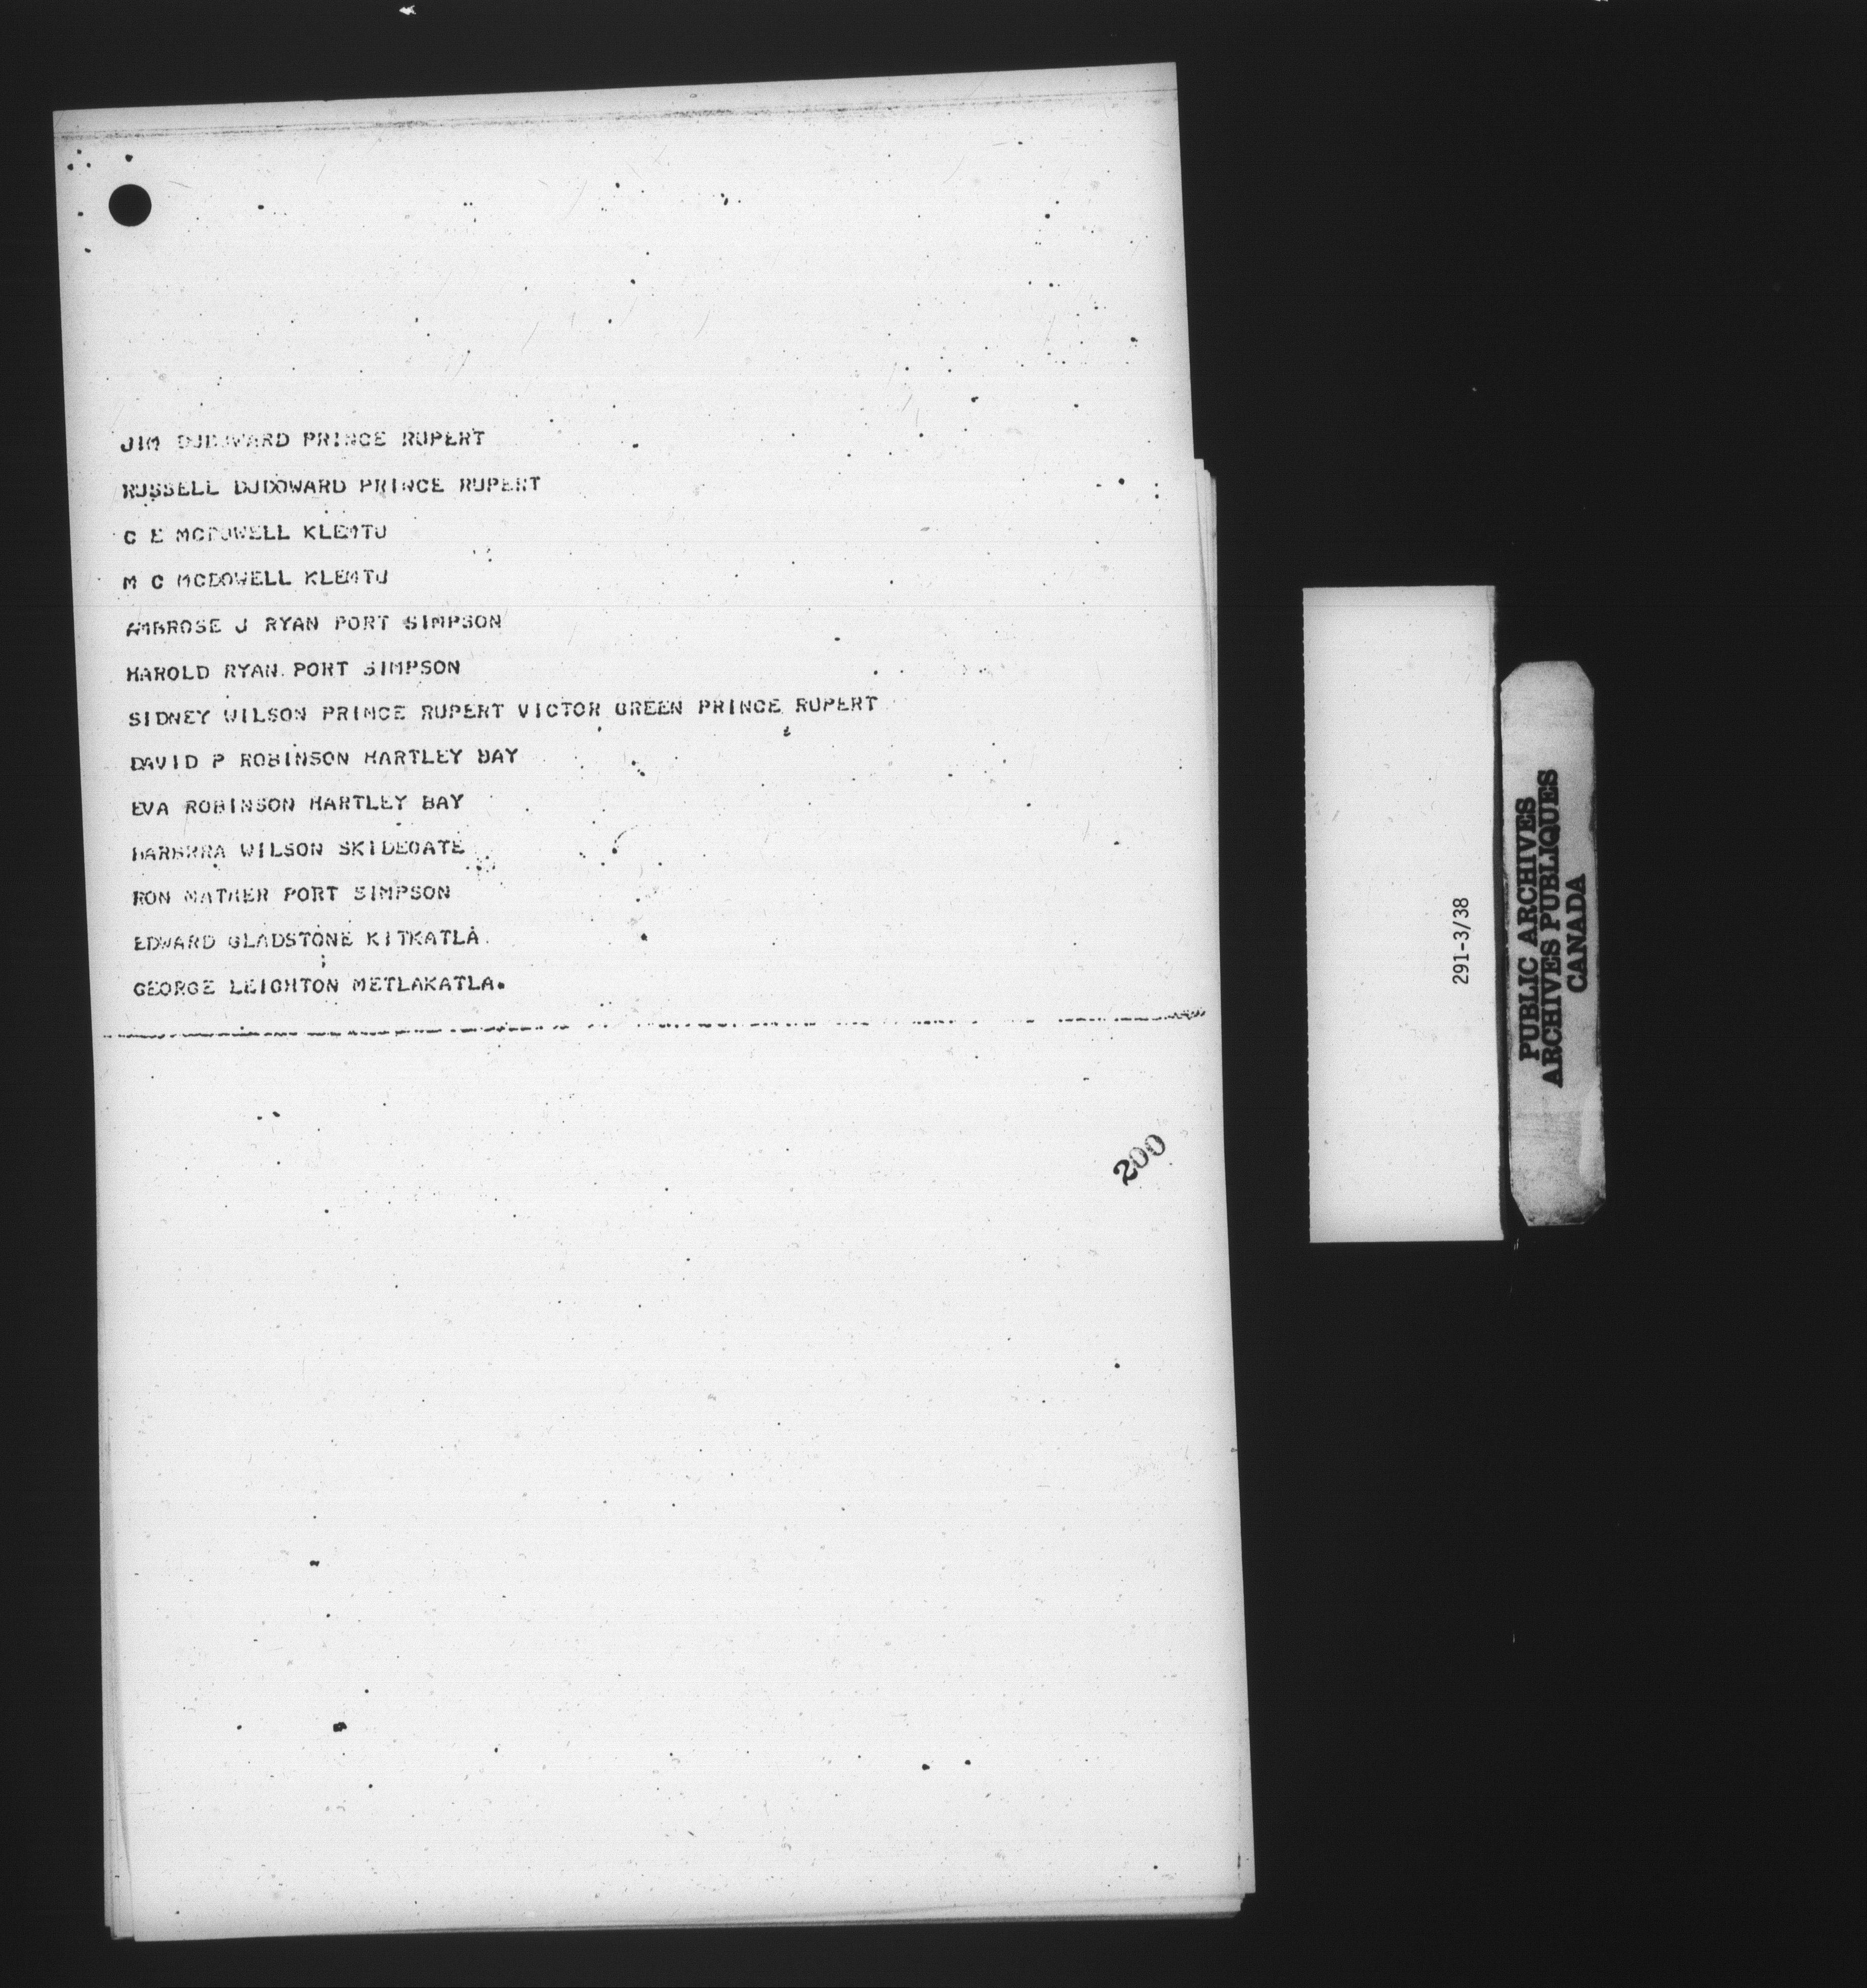 JIM DUDOWARD PRINCE RUPERT
RUSSELL DUDOWARD PRINCE RUPERT
C E MCDOWELL KLEMTU
M C MCDOWELL KLEMTU
AMBROSE J RYAN PORT SIMPSON
HAROLD RYAN PORT SIMPSON
SIDNEY WILSON PRINCE RUPERT VICTOR GREEN PRINCE RUPERT
DAVID P ROBINSON HARTLEY BAY
EVA ROBINSON HARTLEY BAY
BARBRRA WILSON SKIDEGATE
RON NATHER PORT SIMPSON
EDWARD GLADSTONE KITKATLA
GEORGE LEIGHTON METLAKATLA.
200
291-3/38
PUBLIC ARCHIVES
ARCHIVES PUBLIQUES
CANADA